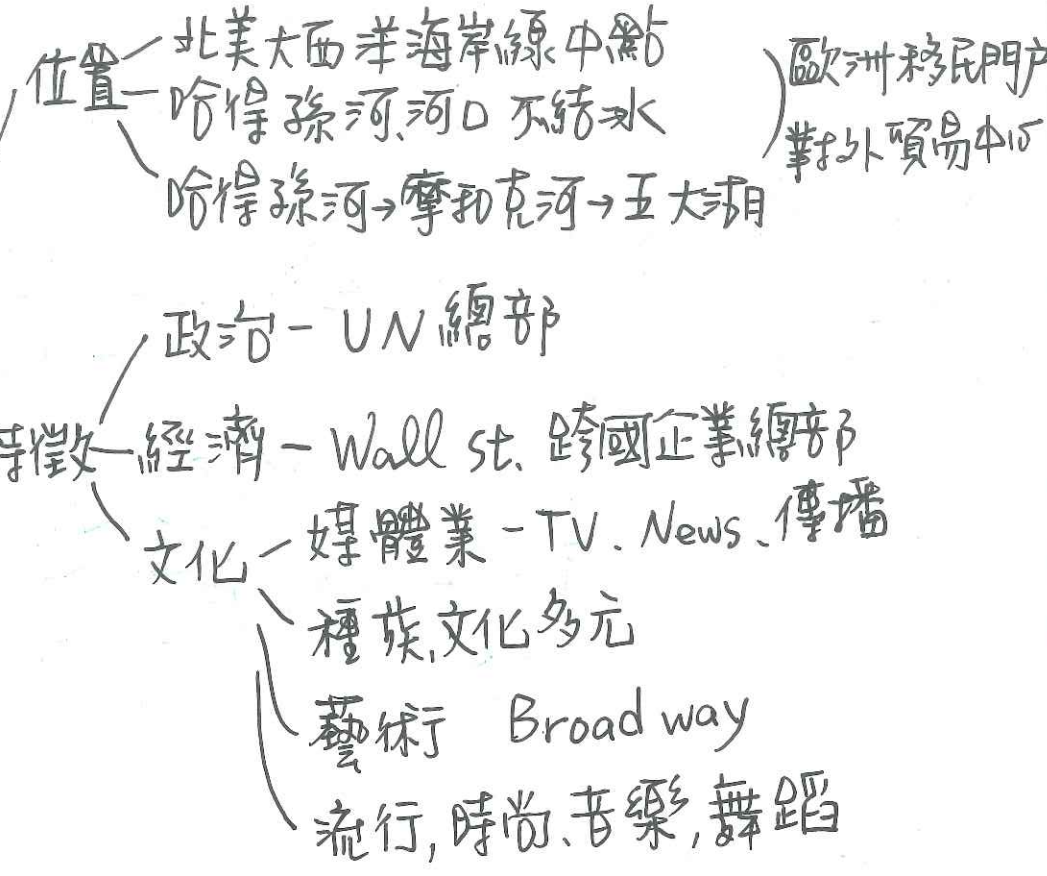 位置
北美大西洋海岸線中點
哈得孫河、河口不結冰
哈得孫河→摩和克河→五大湖
歐洲移民門戶
對外貿易中心
特徵
政治-UN總部
經濟-Wall St. 跨國企業總部
文化
媒體業-TV、News、傳播
種族,文化多元
藝術 Broad way
流行,時尚、音樂,舞蹈